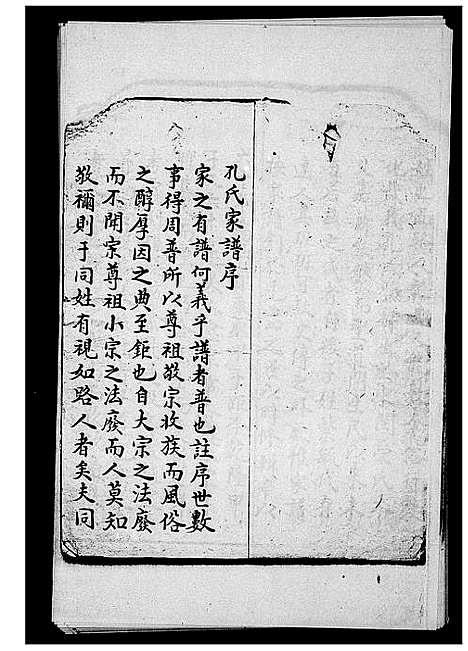 孔氏家譜序
家之有譜何義乎譜者普也註序世數
事得周普所以尊祖敬宗收族而風俗
之醇厚因之典至鉅也自大宗之法廢
而不聞宗尊祖小宗之法廢而人莫知
敬禰則于同姓有視如路人者矣夫同